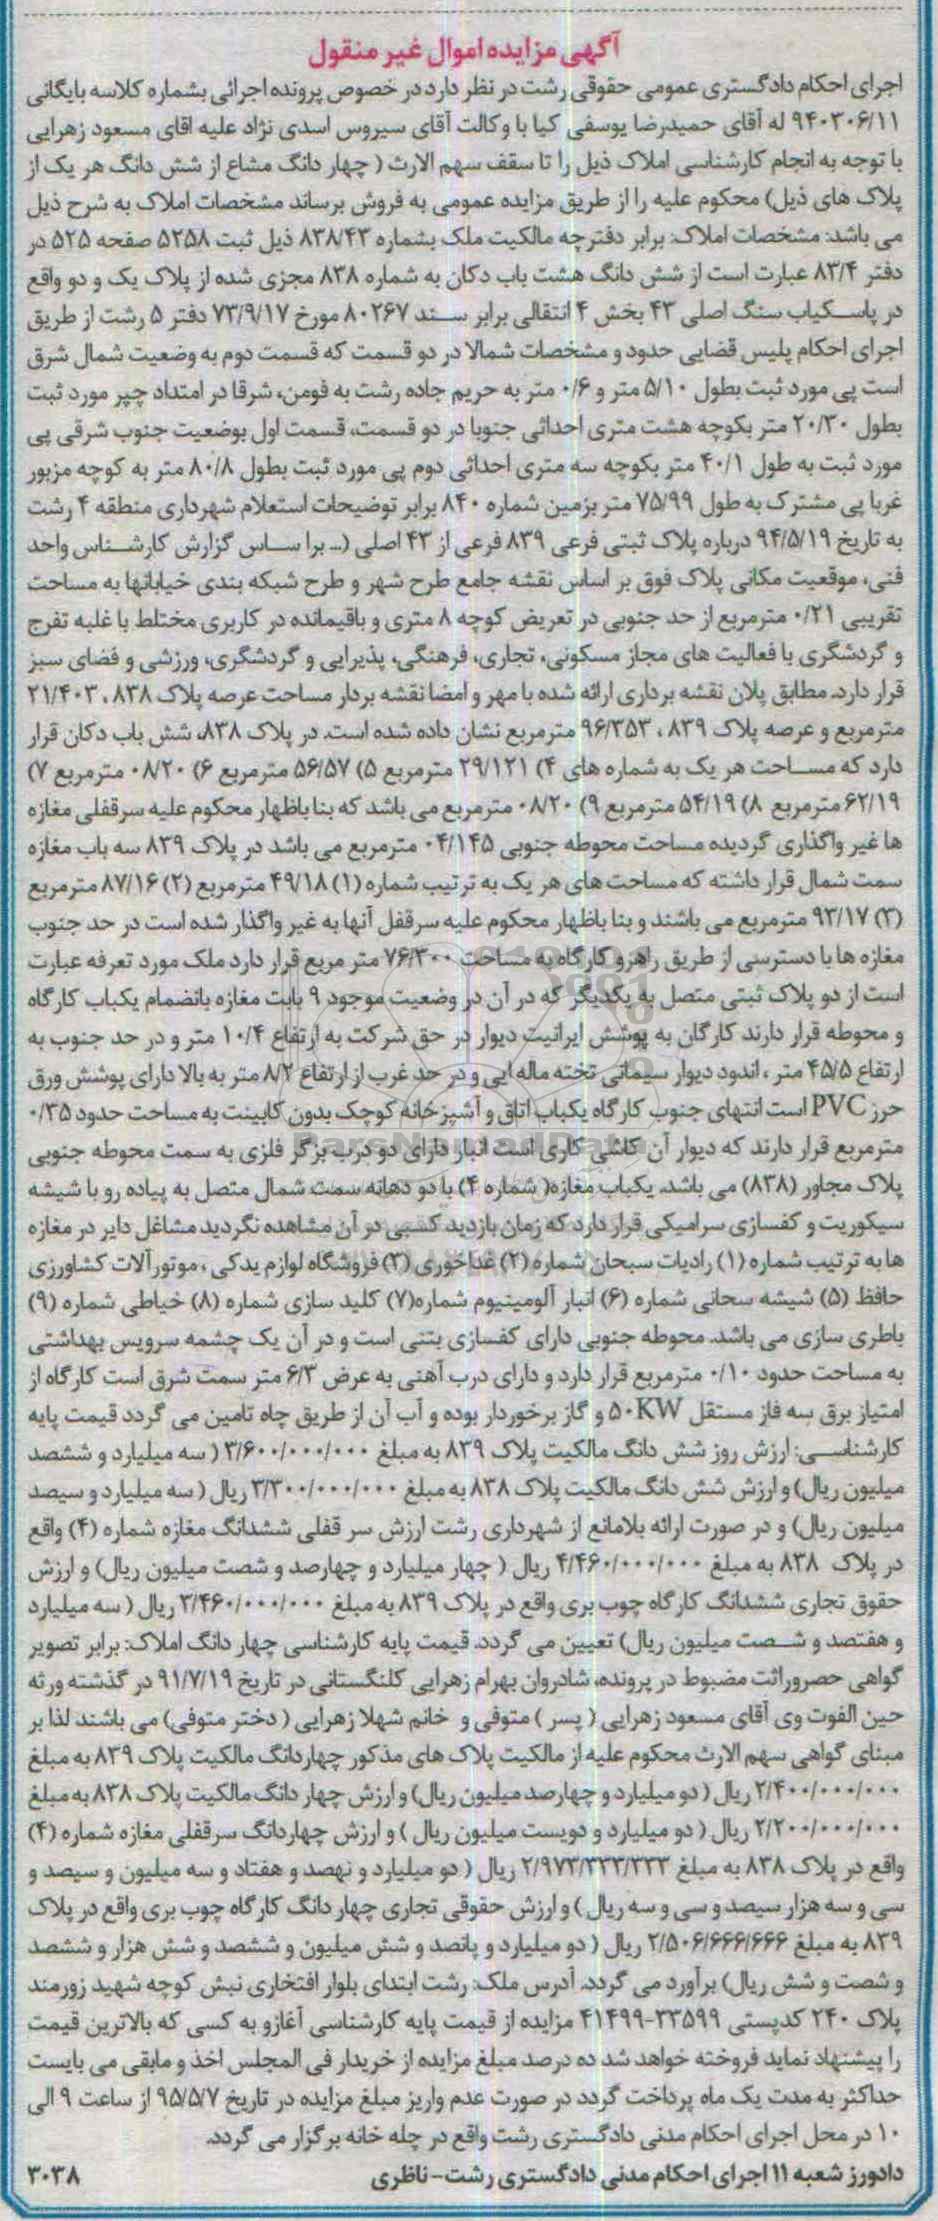 آگهی مزایده اموال غیر منقول
اجرای احکام دادگستری عمومی حقوقی رشت در نظر دارد در خصوص پرونده اجرائی بشماره کلاسه بایگانی
۹۴۰۳۰۶/۱۱ له آقای حمیدرضا یوسفی کیا با وکالت آقای سیروس اسدی نژاد علیه اقای مسعود زهرایی
با توجه به انجام کارشناسی املاک ذیل را تا سقف سهم الارث ( چهار دانگ مشاع از شش دانگ هر یک از
پلاک های ذیل) محکوم علیه را از طریق مزایده عمومی به فروش برساند مشخصات املاک به شرح ذیل
می باشد: مشخصات املاک: برابر دفترچه مالکیت ملک بشماره ۸۳۸/۴۳ ذیل ثبت ۵۲۵۸ صفحه ۵۲۵ در
دفتر ۸۳/۴ عبارت است از شش دانگ هشت باب دکان به شماره ۸۳۸ مجزی شده از پلاک یک و دو واقع
در پاسکیاب سنگ اصلی ۴۳ بخش ۴ انتقالی برابر سند ۸۰۲۶۷ مورخ ۷۳/۹/۱۷ دفتر ۵ رشت از طریق
اجرای احکام پلیس قضایی حدود و مشخصات شمالا در دو قسمت که قسمت دوم به وضعیت شمال شرق
است پی مورد ثبت بطول ۵/۱۰ متر و ۰/۶ متر به حریم جاده رشت به فومن، شرقا در امتداد چپر مورد ثبت
بطول ۲۰/۳۰ متر بکوچه هشت متری احداثی جنوبا در دو قسمت، قسمت اول بوضعیت جنوب شرقی پی
مورد ثبت به طول ۴۰/۱ متر بکوچه سه متری احداثی دوم پی مورد ثبت بطول ۸۰/۸ متر به کوچه مزبور
غربا پی مشترک به طول ۷۵/۹۹ متر بزمین شماره ۸۴۰ برابر توضیحات استعلام شهرداری منطقه ۴ رشت
به تاریخ ۹۴/۵/۱۹ درباره پلاک ثبتی فرعی ۸۳۹ فرعی از ۴۳ اصلی (... برا ساس گزارش کارشناس واحد
فنی، موقعیت مکانی پلاک فوق بر اساس نقشه جامع طرح شهر و طرح شبکه بندی خیابانها به مساحت
تقریبی ۰/۲۱ مترمربع از حد جنوبی در تعریض کوچه ۸ متری و باقیمانده در کاربری مختلط با غلبه تفرج
و گردشگری با فعالیت های مجاز مسکونی، تجاری، فرهنگی، پذیرایی و گردشگری، ورزشی و فضای سبز
قرار دارد. مطابق پلان نقشه برداری ارائه شده با مهر و امضا نقشه بردار مساحت عرصه پلاک ۸۳۸ ، ۲۱/۴۰۳
مترمربع و عرصه پلاک ۸۳۹ ، ۹۶/۳۵۳ مترمربع نشان داده شده است. در پلاک ۸۳۸، شش باب دکان قرار
دارد که مساحت هر یک به شماره های ۴) ۲۹/۱۲۱ مترمربع ۵) ۵۶/۵۷ مترمربع ۶) ۰۸/۲۰ مترمربع ۷)
۶۲/۱۹ مترمربع ۸) ۵۴/۱۹ مترمربع ۹) ۰۸/۲۰ مترمربع می باشد که بنا باظهار محکوم علیه سرقفلی مغازه
ها غیر واگذاری گردیده مساحت محوطه جنوبی ۰۴/۱۴۵ مترمربع می باشد در پلاک ۸۳۹ سه باب مغازه
سمت شمال قرار داشته که مساحت های هر یک به ترتیب شماره (۱) ۴۹/۱۸ مترمربع (۲) ۸۷/۱۶ مترمربع
(۳) ۹۳/۱۷ مترمربع می باشند و بنا باظهار محکوم علیه سرقفل آنها به غیر واگذار شده است در حد جنوب
مغازه ها با دسترسی از طریق راهرو کارگاه به مساحت ۷۶/۳۰۰ متر مربع قرار دارد ملک مورد تعرفه عبارت
است از دو پلاک ثبتی متصل به یکدیگر که در آن در وضعیت موجود ۹ بابت مغازه بانضمام یکباب کارگاه
و محوطه قرار دارند کارگان به پوشش ایرانیت دیوار در حق شرکت به ارتفاع ۱۰/۴ متر و در حد جنوب به
ارتفاع ۴۵/۵ متر ، اندود دیوار سیمانی تخته ماله ایی و در حد غرب از ارتفاع ۸/۲ متر به بالا دارای پوشش ورق
حرز PVC است انتهای جنوب کارگاه یکباب اتاق و آشپزخانه کوچک بدون کابینت به مساحت حدود ۰/۳۵
مترمربع قرار دارند که دیوار آن کاشی کاری است انبار دارای دو درب بزرگر فلزی به سمت محوطه جنوبی
پلاک مجاور (۸۳۸) می باشد. یکباب مغازه( شماره ۴) با دو دهانه سمت شمال متصل به پیاده رو با شیشه
سیکوریت و کفسازی سرامیکی قرار دارد که زمان بازدید کسبی در آن مشاهده نگردید مشاغل دایر در مغازه
ها به ترتیب شماره (۱) رادیات سبحان شماره (۲) غذاخوری (۳) فروشگاه لوازم یدکی ، موتور آلات کشاورزی
حافظ (۵) شیشه سحانی شماره (۶) انبار آلومینیوم شماره(۷) کلید سازی شماره (۸) خیاطی شماره (۹)
باطری سازی می باشد. محوطه جنوبی دارای کفسازی بتنی است و در آن یک چشمه سرویس بهداشتی
به مساحت حدود ۰/۱۰ مترمربع قرار دارد و دارای درب آهنی به عرض ۶/۳ متر سمت شرق است کارگاه از
امتیاز برق سه فاز مستقل ۵۰KW و گاز برخوردار بوده و آب آن از طریق چاه تامین می گردد قیمت پایه
کارشناسی: ارزش روز شش دانگ مالکیت پلاک ۸۳۹ به مبلغ ۳/۶۰۰/۰۰۰/۰۰۰ ( سه میلیارد و ششصد
میلیون ریال) و ارزش شش دانگ مالکیت پلاک ۸۳۸ به مبلغ ۳/۳۰۰/۰۰۰/۰۰۰ ریال ( سه میلیارد و سیصد
میلیون ریال) و در صورت ارائه بلامانع از شهرداری رشت ارزش سر قفلی ششدانگ مغازه شماره (۴) واقع
در پلاک ۸۳۸ به مبلغ ۴/۴۶۰/۰۰۰/۰۰۰ ریال ( چهار میلیارد و چهارصد و شصت میلیون ریال) و ارزش
حقوق تجاری ششدانگ کارگاه چوب بری واقع در پلاک ۸۳۹ به مبلغ ۳/۴۶۰/۰۰۰/۰۰۰ ریال ( سه میلیارد
و هفتصد و شصت میلیون ریال) تعیین می گردد. قیمت پایه کارشناسی چهار دانگ املاک: برابر تصویر
گواهی حصروراثت مضبوط در پرونده، شادروان بهرام زهرایی کلنگستانی در تاریخ ۹۱/۷/۱۹ در گذشته ورثه
حین الفوت وی آقای مسعود زهرایی ( پسر ) متوفی و خانم شهلا زهرایی ( دختر متوفی) می باشند لذا بر
مبنای گواهی سهم الارث محکوم علیه از مالکیت پلاک های مذکور چهاردانگ مالکیت پلاک ۸۳۹ به مبلغ
۲/۴۰۰/۰۰۰/۰۰۰ ریال ( دو میلیارد و چهارصد میلیون ریال) و ارزش چهار دانگ مالکیت پلاک ۸۳۸ به مبلغ
۲/۲۰۰/۰۰۰/۰۰۰ ریال ( دو میلیارد و دویست میلیون ریال ) و ارزش چهاردانگ سرقفلی مغازه شماره (۴)
واقع در پلاک ۸۳۸ به مبلغ ۲/۹۷۳/۳۳۳/۳۳۳ ریال ( دو میلیارد و نهصد و هفتاد و سه میلیون و سیصد و
سی و سه هزار سیصد و سی و سه ریال ) و ارزش حقوقی تجاری چهار دانگ کارگاه چوب بری واقع در پلاک
۸۳۹ به مبلغ ۲/۵۰۶/۶۶۶/۶۶۶ ریال ( دو میلیارد و پانصد و شش میلیون و ششصد و شش هزار و ششصد
و شصت و شش ریال) برآورد می گردد. آدرس ملک: رشت ابتدای بلوار افتخاری نبش کوچه شهید زورمند
پلاک ۲۴۰ کدپستی ۳۳۵۹۹-۴۱۴۹۹ مزایده از قیمت پایه کارشناسی آغازو به کسی که بالاترین قیمت
را پیشنهاد نماید فروخته خواهد شد ده درصد مبلغ مزایده از خریدار فی المجلس اخذ و مابقی می بایست
حداکثر به مدت یک ماه پرداخت گردد در صورت عدم واریز مبلغ مزایده در تاریخ ۹۵/۵/۷ از ساعت ۹ الی
۱۰ در محل اجرای احکام مدنی دادگستری رشت واقع در چله خانه برگزار می گردد.
دادورز شعبه ۱۱ اجرای احکام مدنی دادگستری رشت- ناظری ۳۰۳۸
ParsNamadData